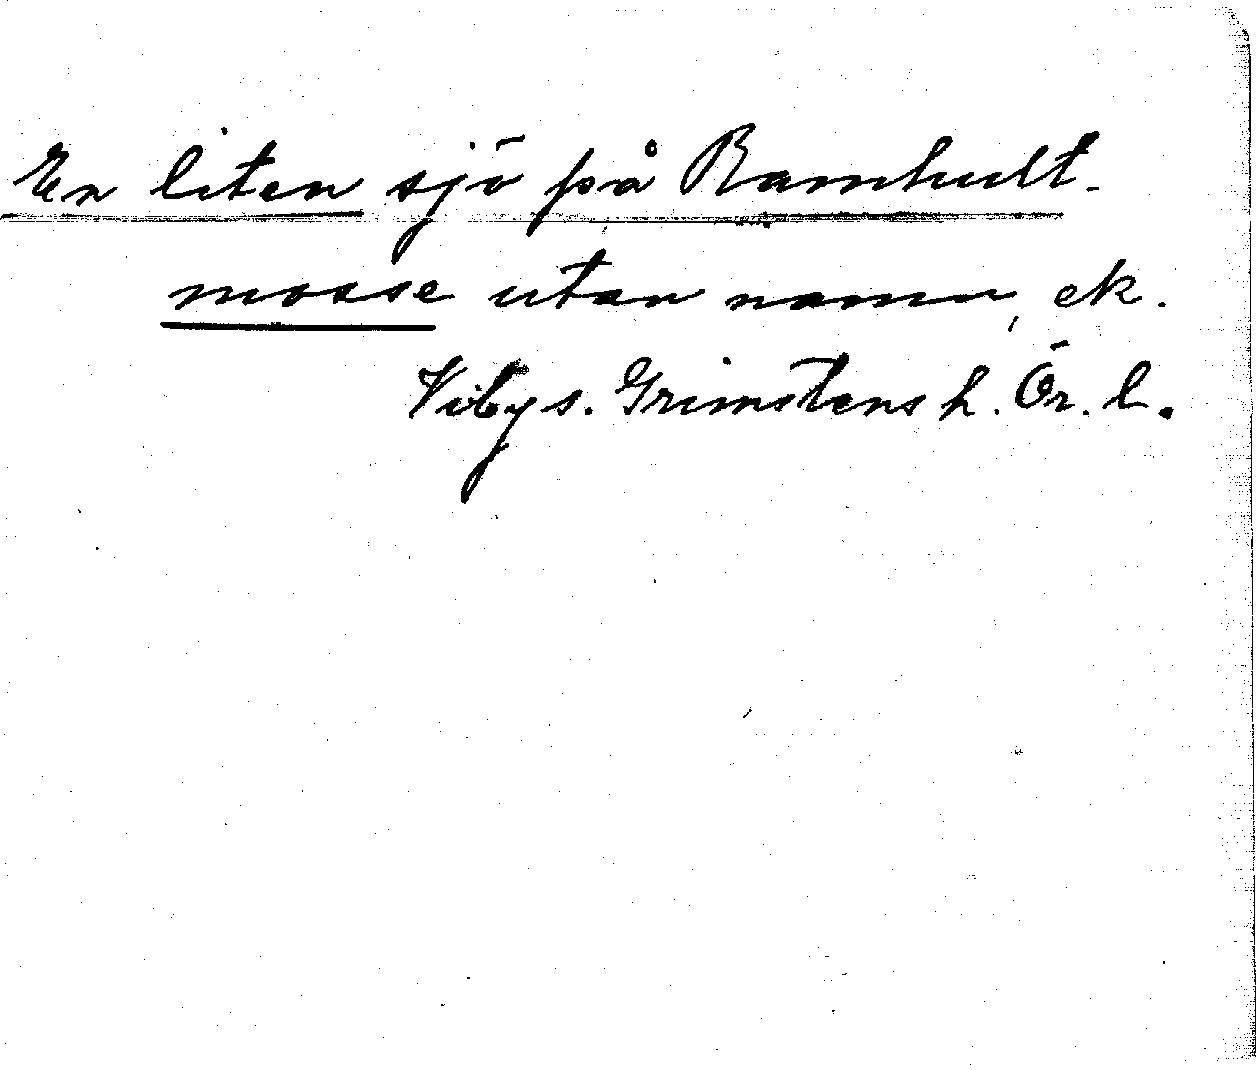 En liten sjö på Ramhult-
mosse utan namn, ek.
Viby s. Grimstens h. Ör. l.